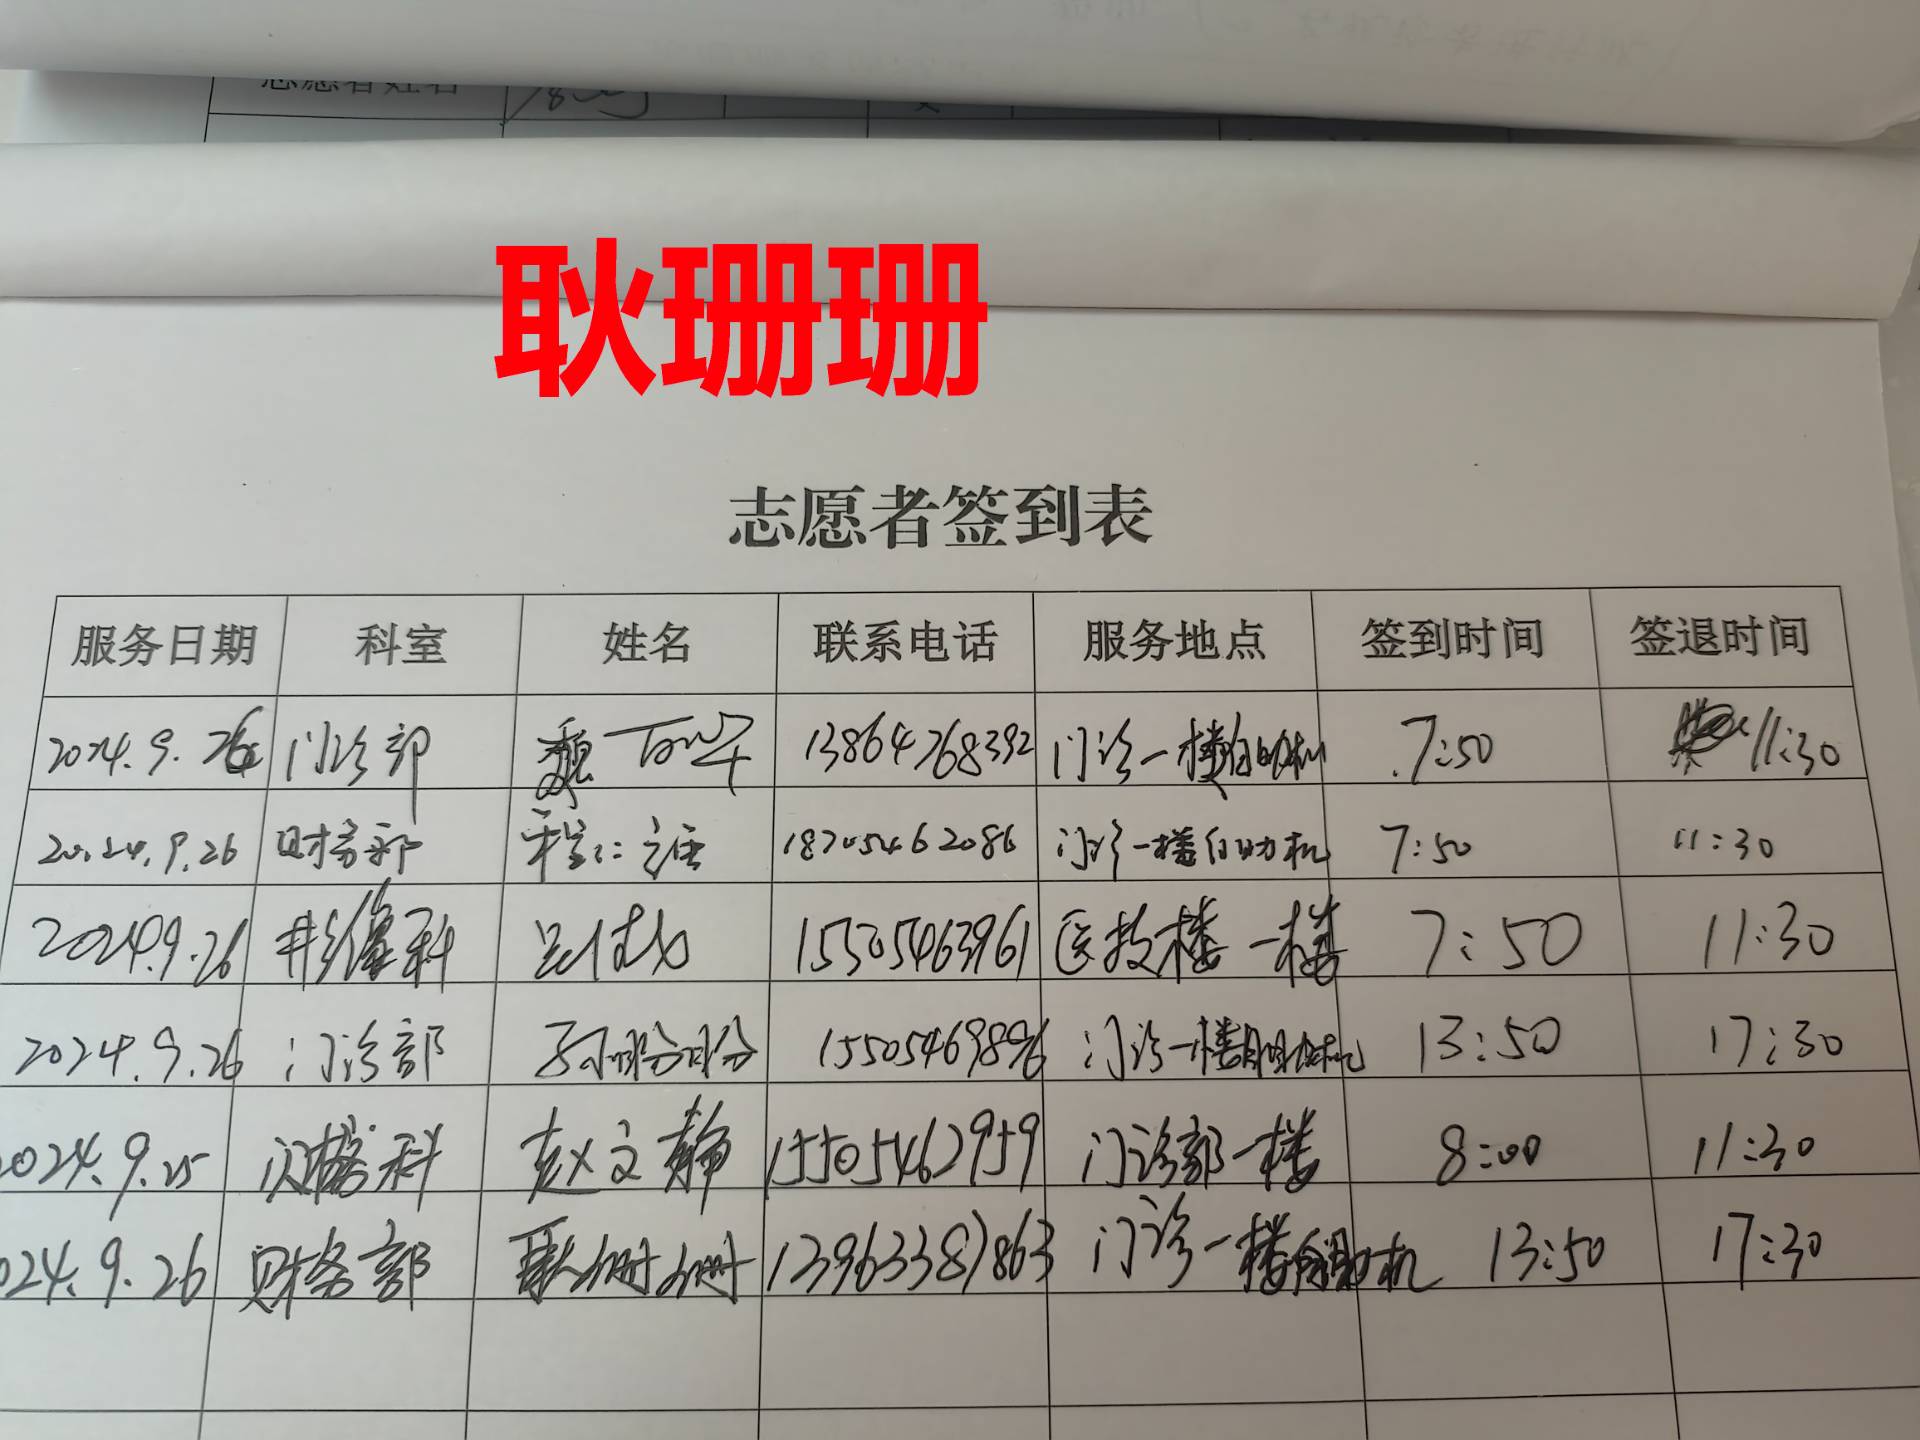 志愿者姓名
耿珊珊
志愿者签到表
服务日期 科室 姓名 联系电话 服务地点 签到时间 签退时间
2024.9.26 门诊部 魏 13864768392 门诊一楼自助机 7:50 11:30
2024.9.26 财务部 程 18705462086 门诊一楼自助机 7:50 11:30
2024.9.26 影像科 15505463961 医技楼一楼 7:50 11:30
2024.9.26 门诊部 15505469896 门诊一楼自助机 13:50 17:30
2024.9.25 科 赵文静 15505462959 门诊部一楼 8:00 11:30
024.9.26 财务部 耿珊珊 13963387863 门诊一楼自助机 13:50 17:30